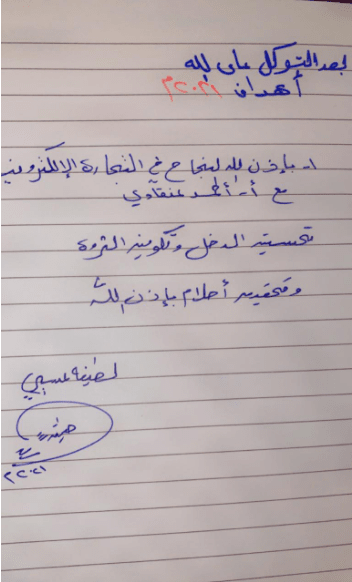 بعد التوكل على الله
أهداف ٢٠٢١م
١- بإذن الله لنجاح في التجارة الإلكترونية
مع أ- أحمد عنقاوي
تحسين الدخل وتكوين الثروة
وتحقيق أحلام بإذن الله
لطيفة
٢٠٢١